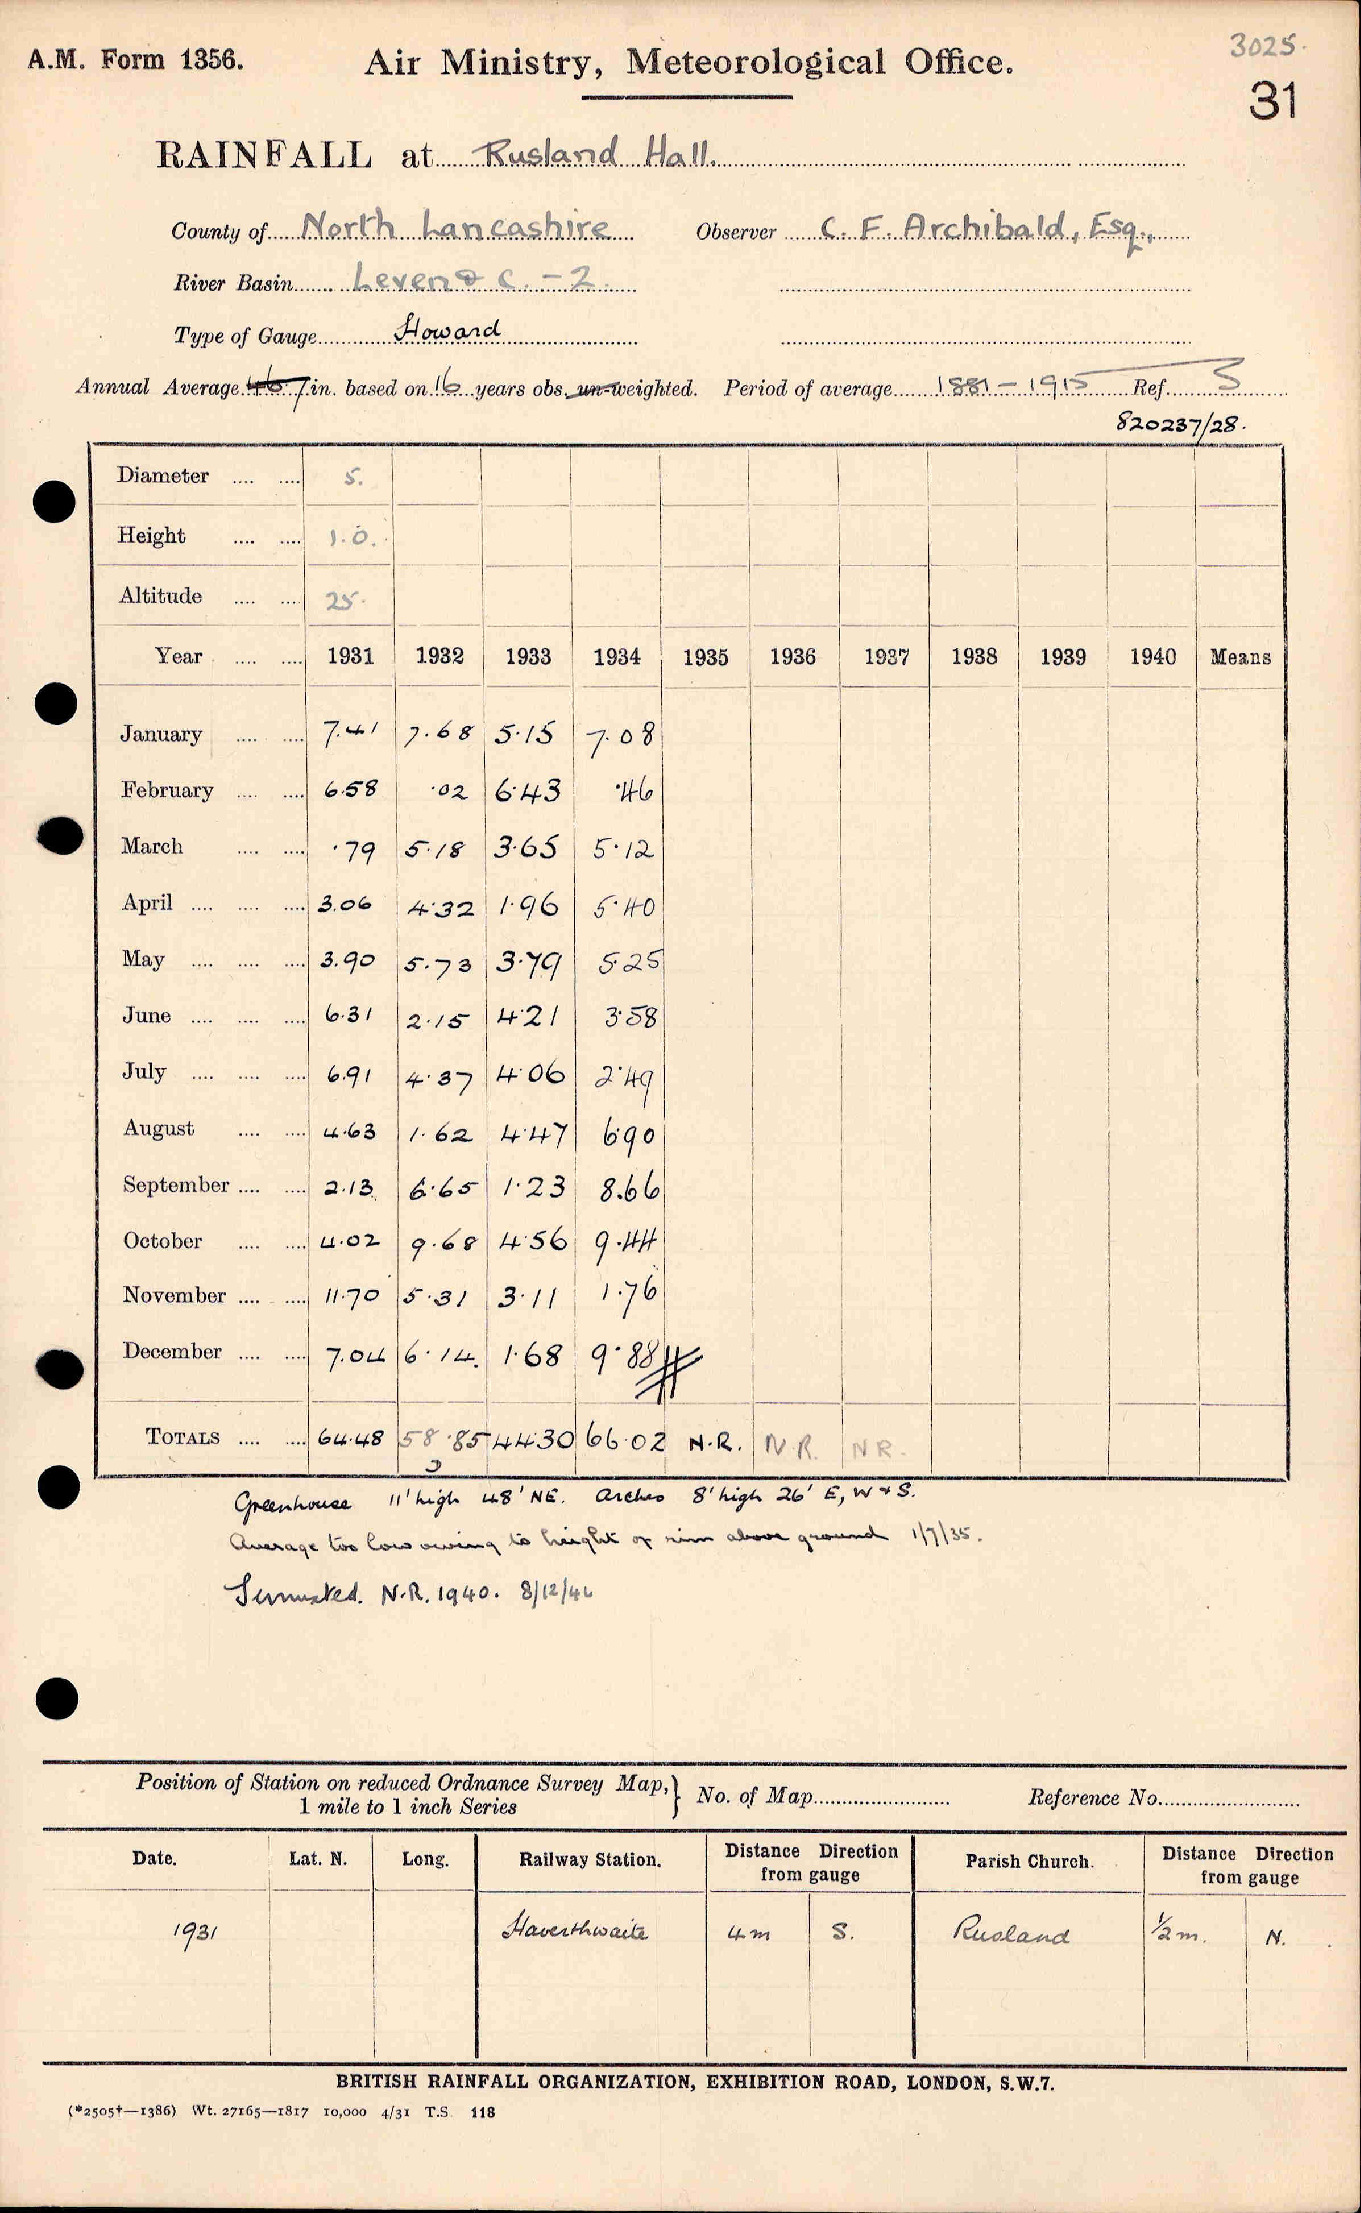 3025.
A.M. Form 1356. Air Ministry, Meteorological Office.
31
RAINFALL at Rusland Hall.
County of North Lancashire Observer C. F. Archibald, Esq.,
River Basin Leven & C. - 2.
Type of Gauge Howard
Annual Average 46.7 in. based on 16 years obs. un-weighted. Period of average 1881-1915 Ref.
820237/28.
Diameter .... .... 5.
Height .... .... 1.0.
Altitude .... .... 25.
Year .... .... 1931 1932 1933 1934 1935 1936 1937 1938 1939 1940 Means
January .... .... 7.41 7.68 5.15 7.08
February .... .... 6.58 .02 6.43 .46
March .... .... .79 5.18 3.65 5.12
April .... .... .... 3.06 4.32 1.96 5.40
May .... .... .... 3.90 5.73 3.79 5.25
June .... .... .... 6.31 2.15 4.21 3.58
July .... .... .... 6.91 4.37 4.06 2.49
August .... .... 4.63 1.62 4.47 6.90
September .... .... 2.13 6.65 1.23 8.66
October .... .... 4.02 9.68 4.56 9.44
November .... .... 11.70 5.31 3.11 1.76
December .... .... 7.04 6.14. 1.68 9.88
TOTALS .... .... 64.48 58.85 44.30 66.02 N.R. N.R. N R.
Greenhouse 11' high 48' NE. Arches 8' high 26' E, W & S.
Average too low owing to height of rim above ground 1/7/35.
N.R. 1940.
Position of Station on reduced Ordnance Survey Map,} No. of Map Reference No.
1 mile to 1 inch Series
Date. Lat. N. Long. Railway Station. Distance Direction from gauge Parish Church. Distance Direction from gauge
1931 Haverthwaite 4 m S. Rusland ½ m. N.
BRITISH RAINFALL ORGANIZATION, EXHIBITION ROAD, LONDON, S.W.7.
(*2505†—1386) Wt. 27165—1817 10,000 4/31 T.S. 118